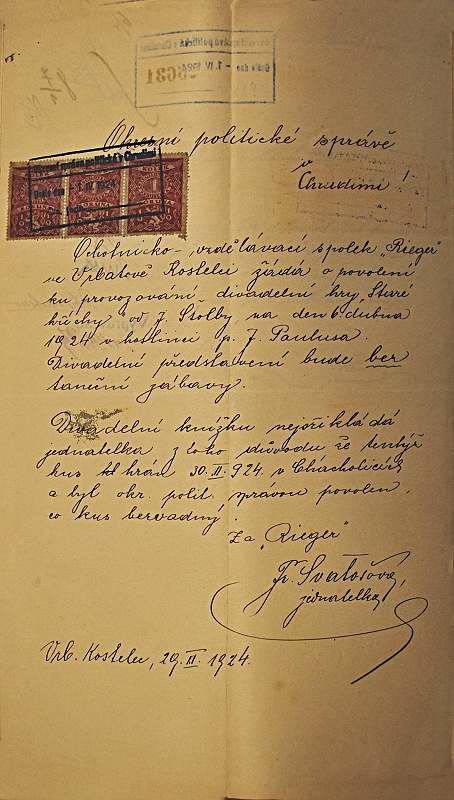 Okresní politické správě
v
Chrudimi
Okresní správa politická v Chrudimi
Došlo dne - 1. IV. 1924
KORUNA
Ochotnicko-vzdělávací spolek „Rieger"
ve Vrbatově Kostelci žádá o povolení
ku provozování divadelní hry „Staré
hříchy" od J. Štolby na den 6. dubna
1924 v hostinci p. J. Paulusa.
Divadelní představení bude bez
taneční zábavy.
Divadelní knížku nepřikládá
jednatelka z toho důvodu že tentýž
kus hrán 30. II. 924. v Chacholicích
a byl okr. polit. správou povolen,
co kus bezvadný.
Za „Rieger"
Fr. Svatošová,
jednatelka
Vrb. Kostelec, 29. III. 1924.